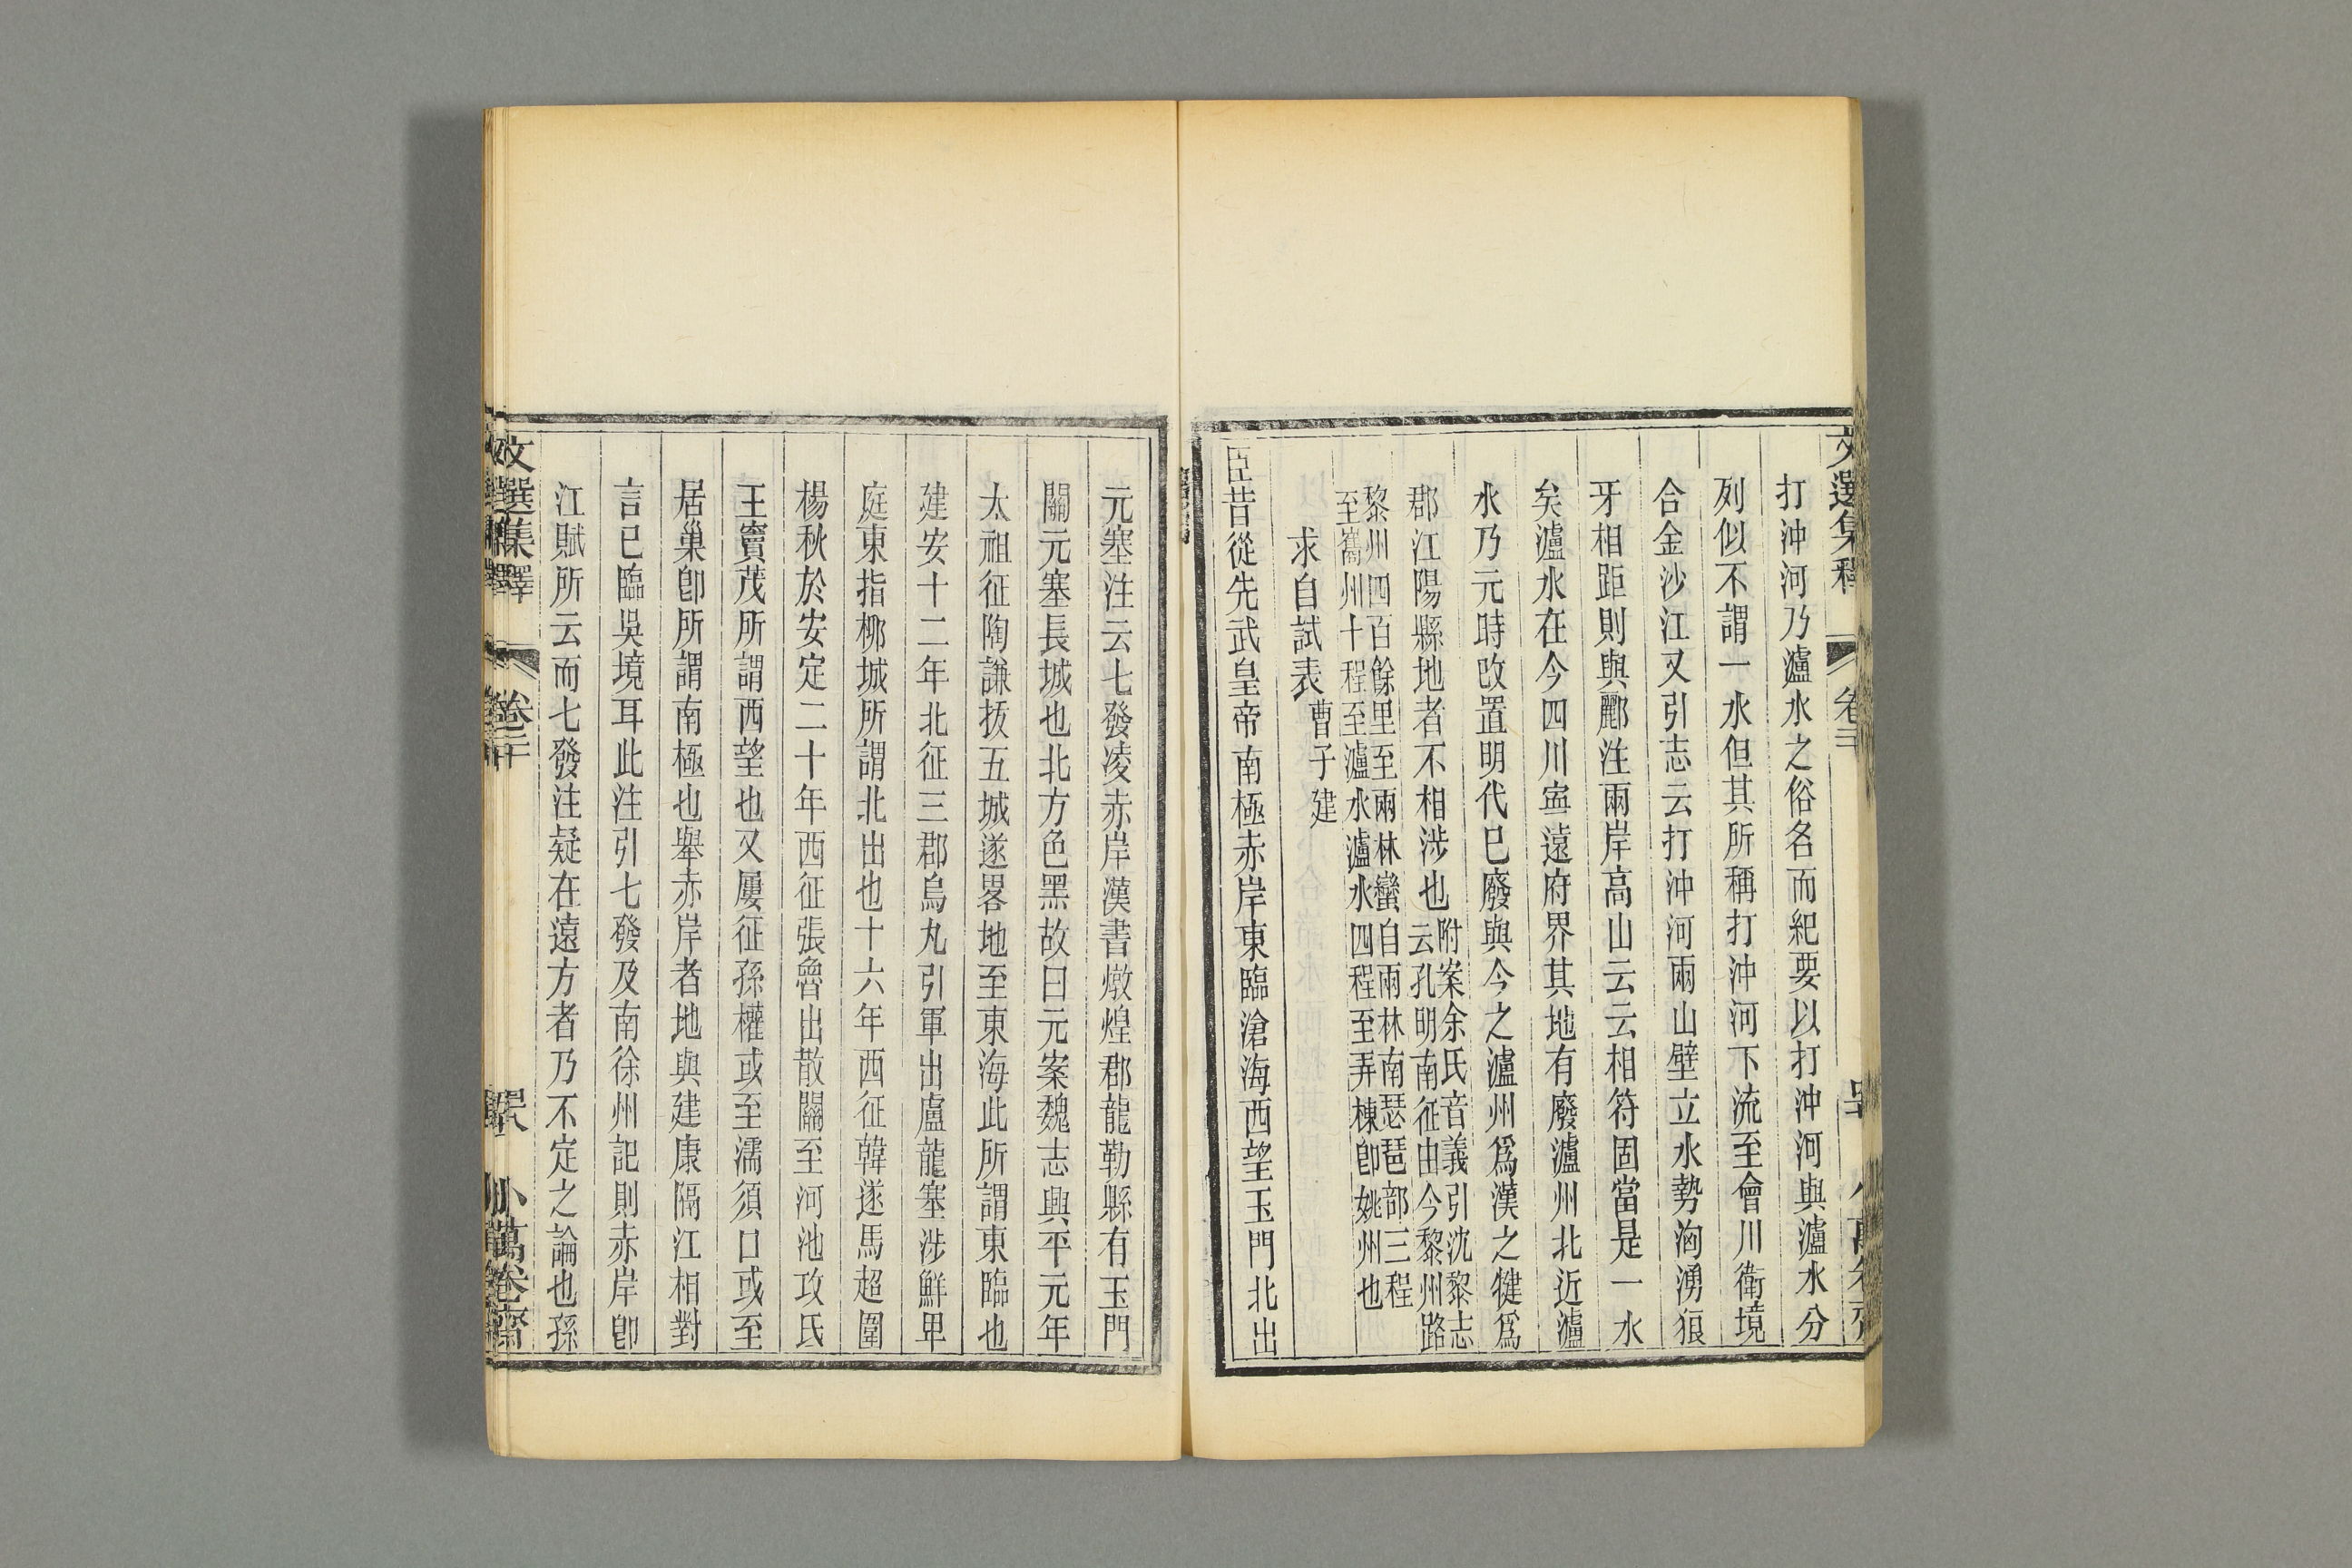 打沖河乃瀘水之俗名而紀要以打沖河與瀘水分
列似不謂一水但其所稱打沖河下流至會川衛境
合金沙江又引志云打沖河兩山壁立水勢洶湧狼
牙相距則與酈注兩岸高山云云相符固當是一水
矣瀘水在今四川寍遠府界其地有廢瀘州北近瀘
水乃元時改置明代已廢與今之瀘州爲漢之犍爲
郡江陽縣地者不相涉也附案余氏音義引沈黎志
云孔明南征由今黎州路
黎州四百餘里至兩林蠻自兩林南瑟琶部三程
至巂州十程至瀘水瀘水四程至弄棟卽姚州也
求自試表 曹子建
臣昔從先武皇帝南極赤岸東臨滄海西望玉門北出
元塞注云七發凌赤岸漢書燉煌郡龍勒縣有玉門
關元塞長城也北方色黑故曰元案魏志興平元年
太祖征陶謙拔五城遂畧地至東海此所謂東臨也
建安十二年北征三郡烏丸引軍出盧龍塞涉鮮卑
庭東指柳城所謂北出也十六年西征韓遂馬超圍
楊秋於安定二十年西征張魯出散關至河池攻氐
王竇茂所謂西望也又屢征孫權或至濡須口或至
居巢卽所謂南極也舉赤岸者地與建康隔江相對
言已臨吳境耳此注引七發及南徐州記則赤岸卽
江賦所云而七發注疑在遠方者乃不定之論也孫
文選集釋 卷二十 小萬卷齋